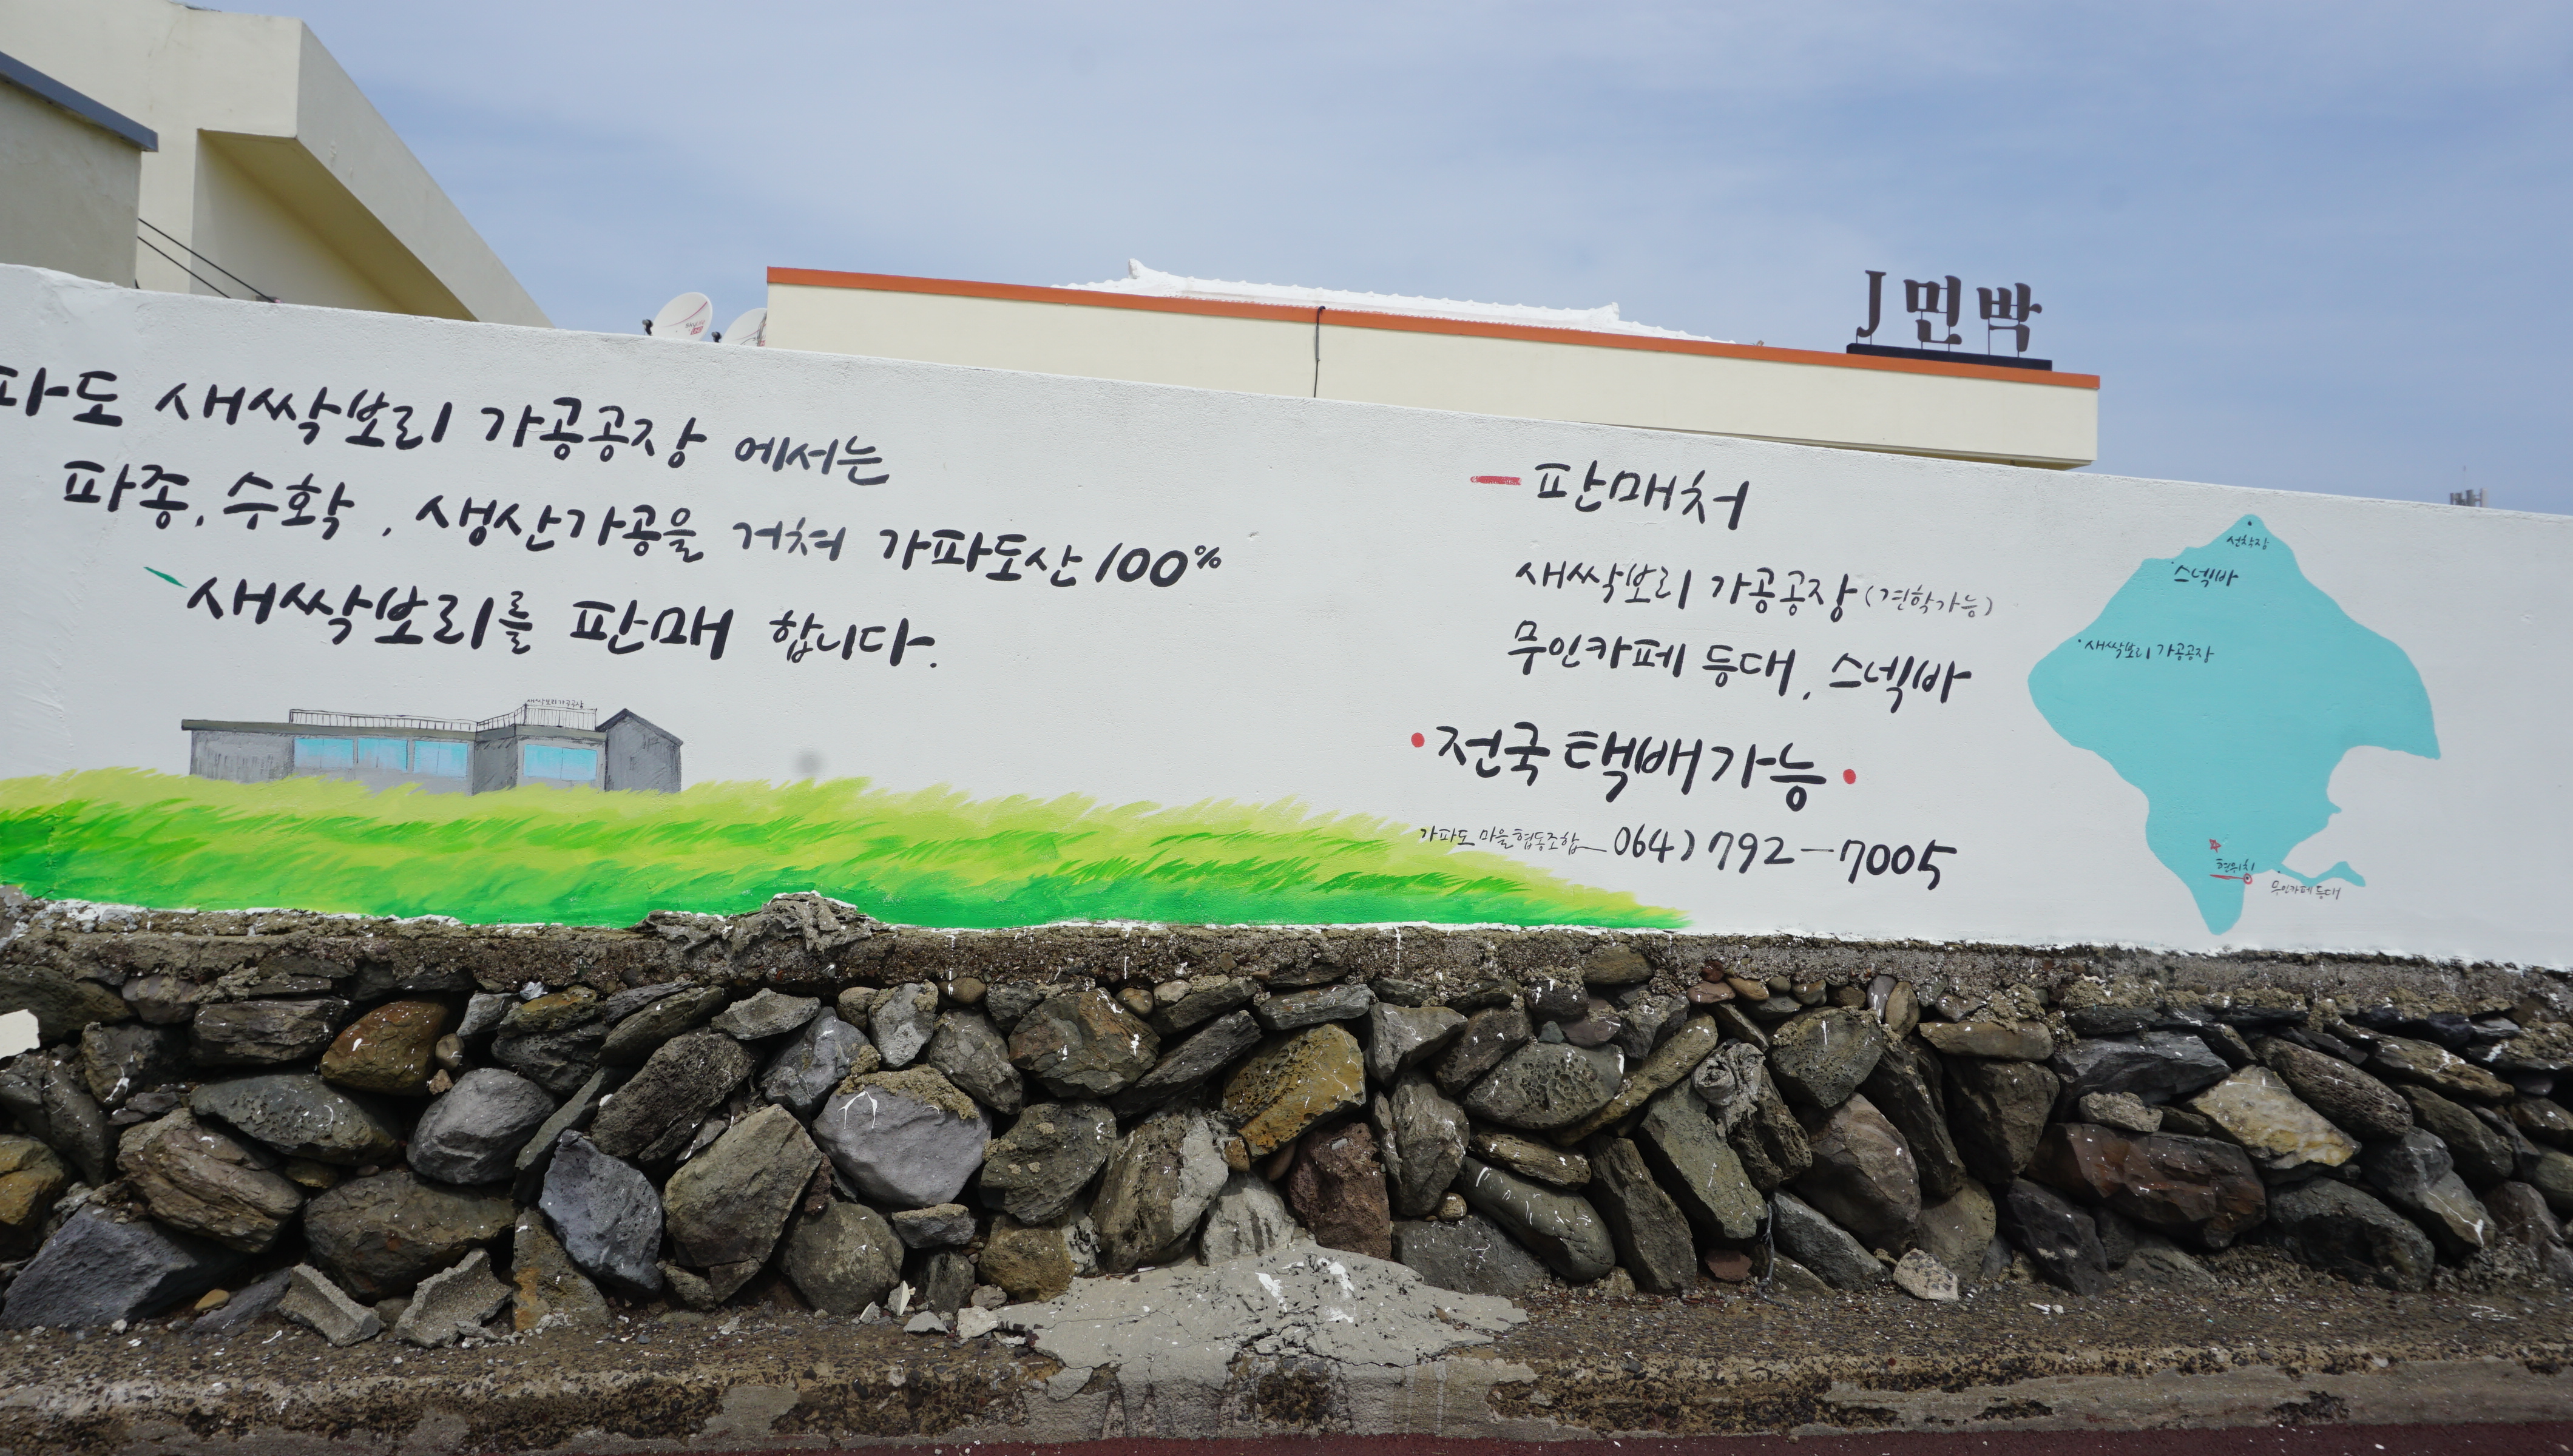 J민박
파도 새싹보리 가공공장 에서는
파종, 수확, 생산가공을 거쳐 가파도산 100%
새싹보리를 판매 합니다.
새싹보리가공공장
판매처
새싹보리 가공공장 (견학가능)
무인카페 등대, 스넥바
전국 택배가능
가파도 마을협동조합 064) 792-7005
선착장
스넥바
새싹보리 가공공장
현위치
무인카페 등대